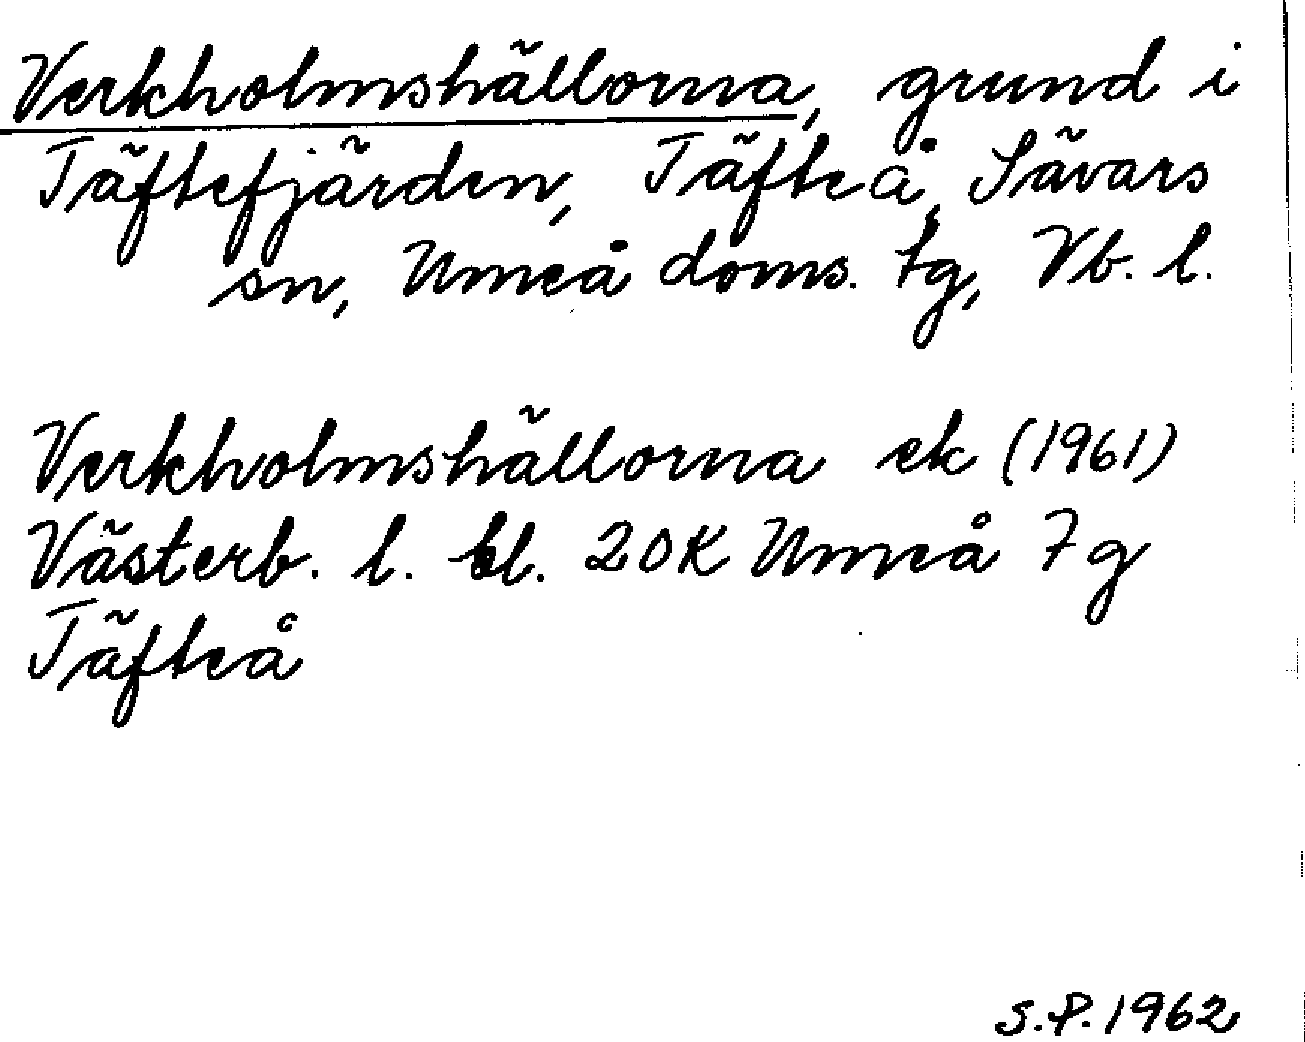 Verkholmshällorna, grund i
Täftefjärden, Täfteå, Sävars
sn, Umeå doms. tg, Vb. l.
Verkholmshällorna ek (1961)
Västerb. l. bl. 20K Umeå 7g
Täfteå
S.P. 1962